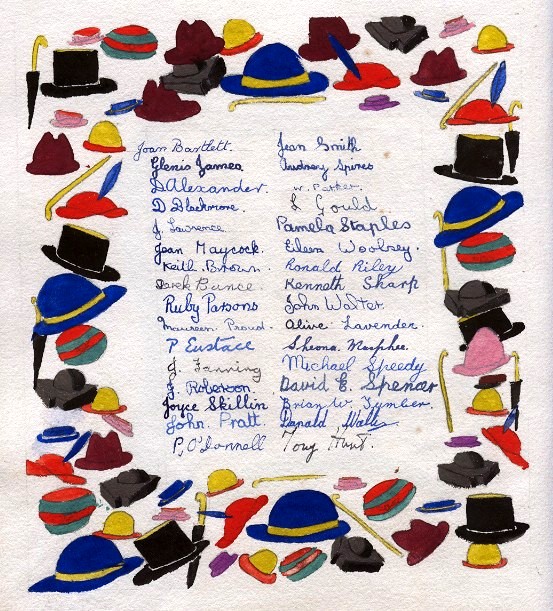 Joan Bartlett.
Glenis James
D Alexander.
D Blackmore.
J. Lawrence
Joan Maycock.
Keith. Brown.
Derek Bunce
Ruby Parsons
Maureen Proud.
P Eustace
J. Fanning
J. Roberson
Joyce Skillin
John. Pratt.
P. O'Donnell
Jean Smith
Audrey Spires
W. Parker.
L Gould
Pamela Staples
Eileen Woolsey.
Ronald Riley
Kenneth Sharp
John Walter
Olive Lavender.
Sheona Macphee.
Michael Speedy
David E. Spencer
Brian W. Tymber.
Donald Watts
Tony Hunt.